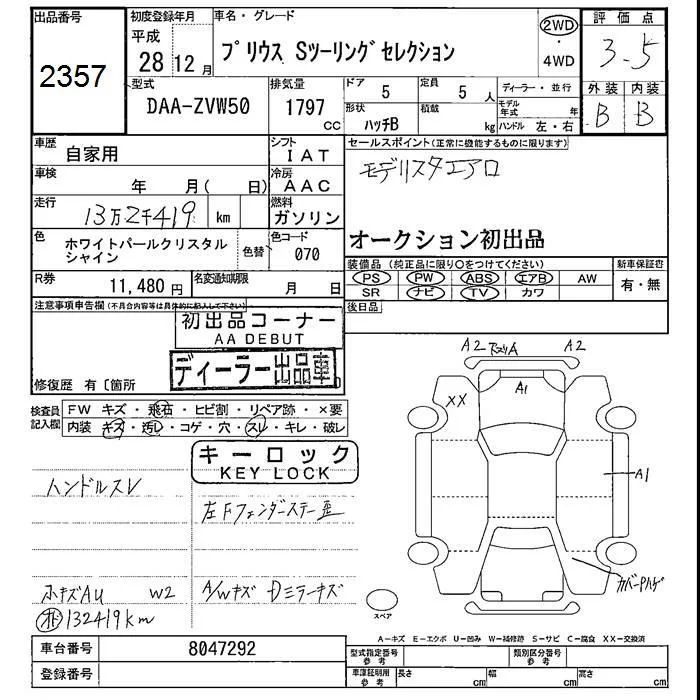 出品番号
2357
初度登録年月
平成
28 12 月
車名・グレード
プリウス Sツーリングセレクション
2WD
・
4WD
評価点
3.5
外装 内装
B B
型式
DAA-ZVW50
排気量
1797
cc
ドア 5
形状
ハッチB
定員 5 人
積載 kg
ディーラー・並行
モデル
年式 年
ハンドル 左・右
車歴
自家用
シフト
IAT
車検
年 月( 日)
冷房
AAC
走行
13万2千419 km
燃料
ガソリン
色
ホワイトパールクリスタル
シャイン
色替
色コード
070
R券
11,480 円
名変通知期限
月 日
セールスポイント(正常に機能するものに限ります)
モデリスタエアロ
オークション初出品
装備品(純正品に限り○をつけてください)
PS PW ABS エアB AW
SR ナビ TV カワ
新車保証書
有・無
後日品
注意事項申告欄(不具合内容等は具体的に記入して下さい)
初出品コーナー
AA DEBUT
ディーラー出品車
修復歴 有〔箇所
検査員
記入欄
FW キズ・飛石・ヒビ割・リペア跡・×要
内装 キズ・汚レ・コゲ・穴・スレ・キレ・破レ
キーロック
KEY LOCK
ハンドルスレ
左Fフェンダーステー歪
小キズAU W2
A/Wキズ Dミラーキズ
132419km
A2 A2
A1
XX
A1
カバーPハゲ
スペア
A-キズ E-エクボ U-凹み W-補修跡 S-サビ C-腐食 XX-交換済
車台番号
8047292
登録番号
型式指定番号
参考
類別区分番号
参考
車庫証明用
参考
長さ cm
幅 cm
高さ cm